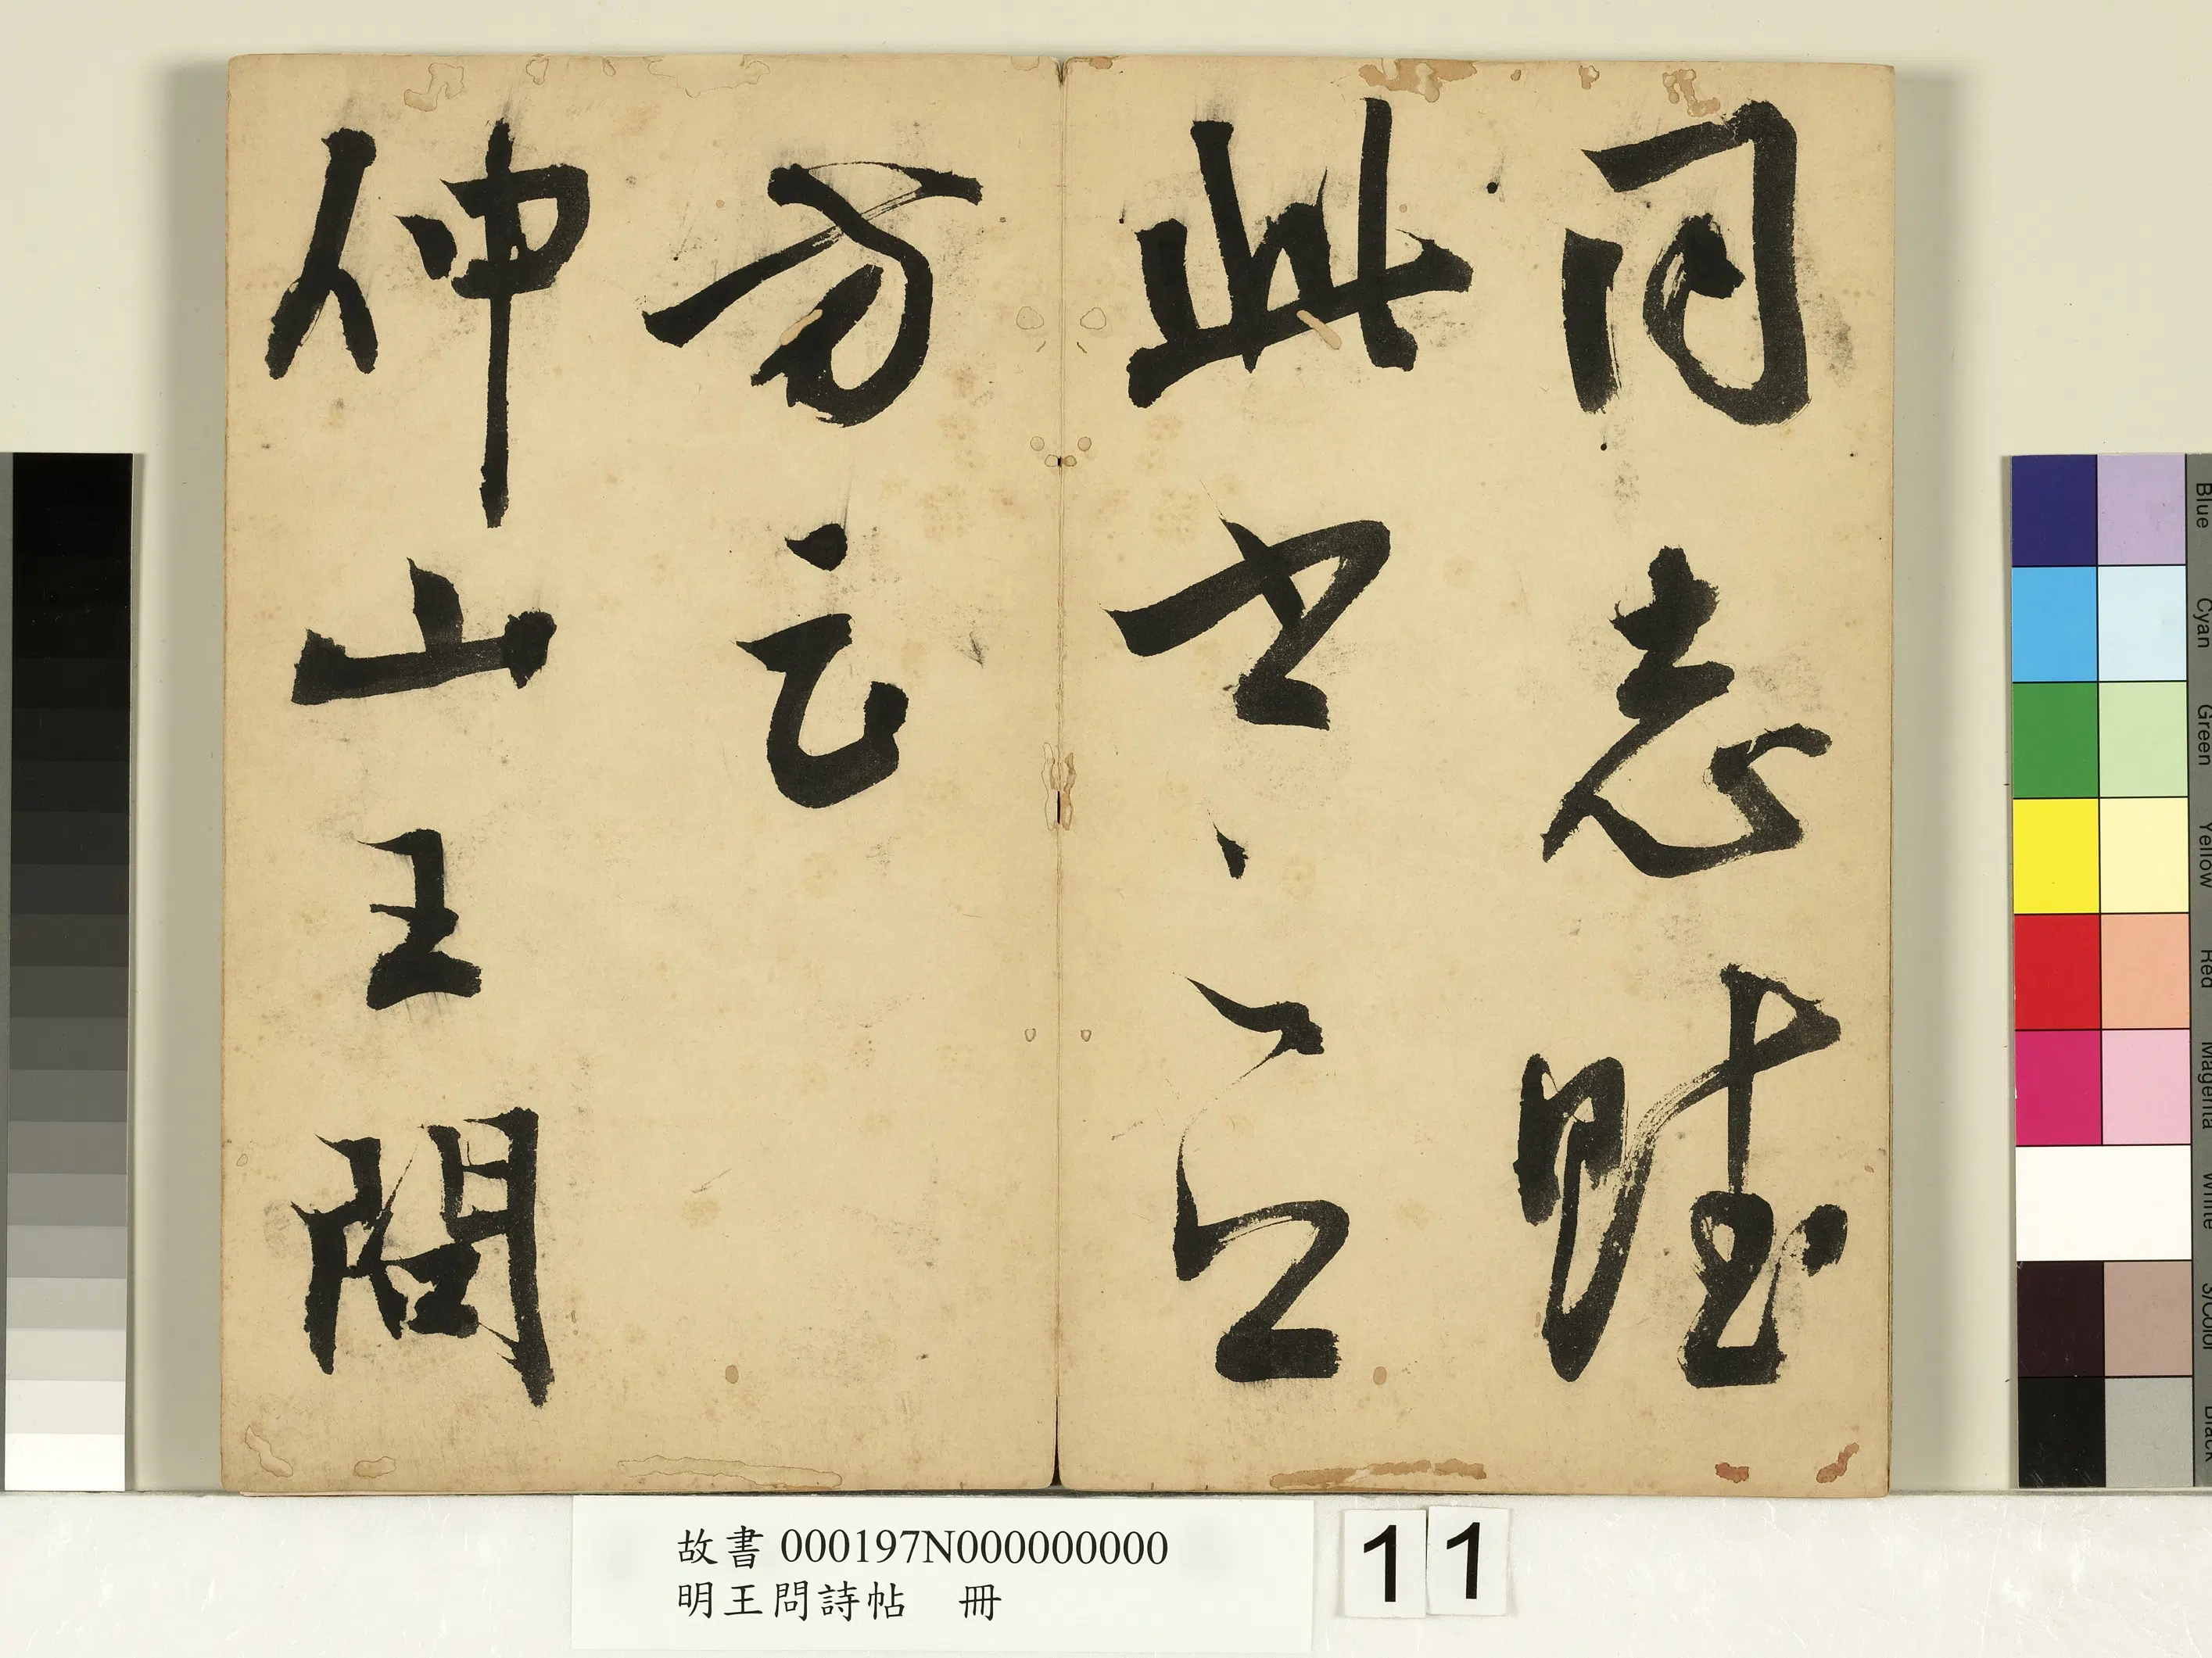 同志賦
此書
云
仲山王問
故書 000197N000000000
明王問詩帖 冊
11
Blue
Cyan
Green
Yellow
Red
Magenta
White
3/Color
Black